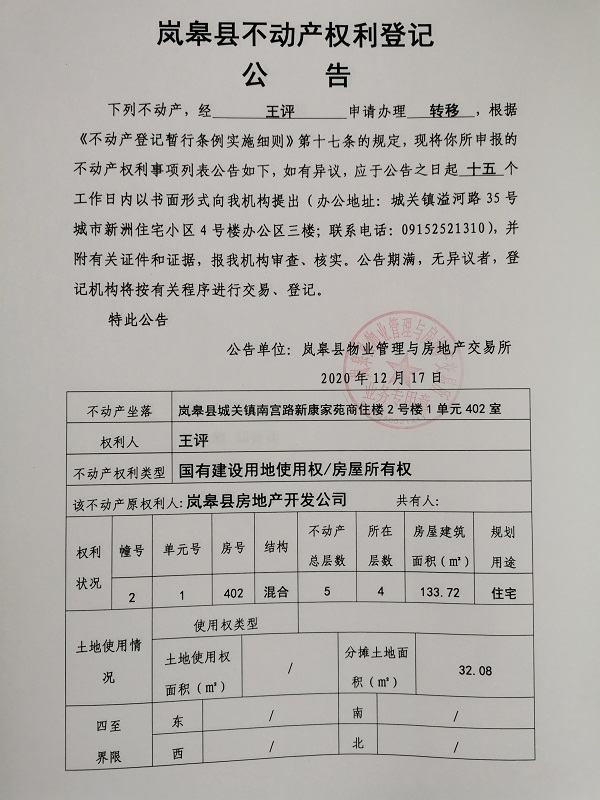 岚皋县不动产权利登记
公 告
下列不动产，经 王评 申请办理 转移 ，根据
《不动产登记暂行条例实施细则》第十七条的规定，现将你所申报的
不动产权利事项列表公告如下，如有异议，应于公告之日起 十五 个
工作日内以书面形式向我机构提出（办公地址：城关镇溢河路 35 号
城市新洲住宅小区 4 号楼办公区三楼；联系电话：09152521310），并
附有关证件和证据，报我机构审查、核实。公告期满，无异议者，登
记机构将按有关程序进行交易、登记。
特此公告
公告单位：岚皋县物业管理与房地产交易所
2020 年 12 月 17 日
不动产坐落 岚皋县城关镇南宫路新康家苑商住楼 2 号楼 1 单元 402 室
权利人 王评
不动产权利类型 国有建设用地使用权/房屋所有权
该不动产原权利人：岚皋县房地产开发公司 共有人：
权利状况 幢号 单元号 房号 结构 不动产总层数 所在层数 房屋建筑面积（㎡） 规划用途
2 1 402 混合 5 4 133.72 住宅
土地使用情况 使用权类型
土地使用权面积（㎡） / 分摊土地面积（㎡） 32.08
四至界限 东 / 南 /
西 / 北 /